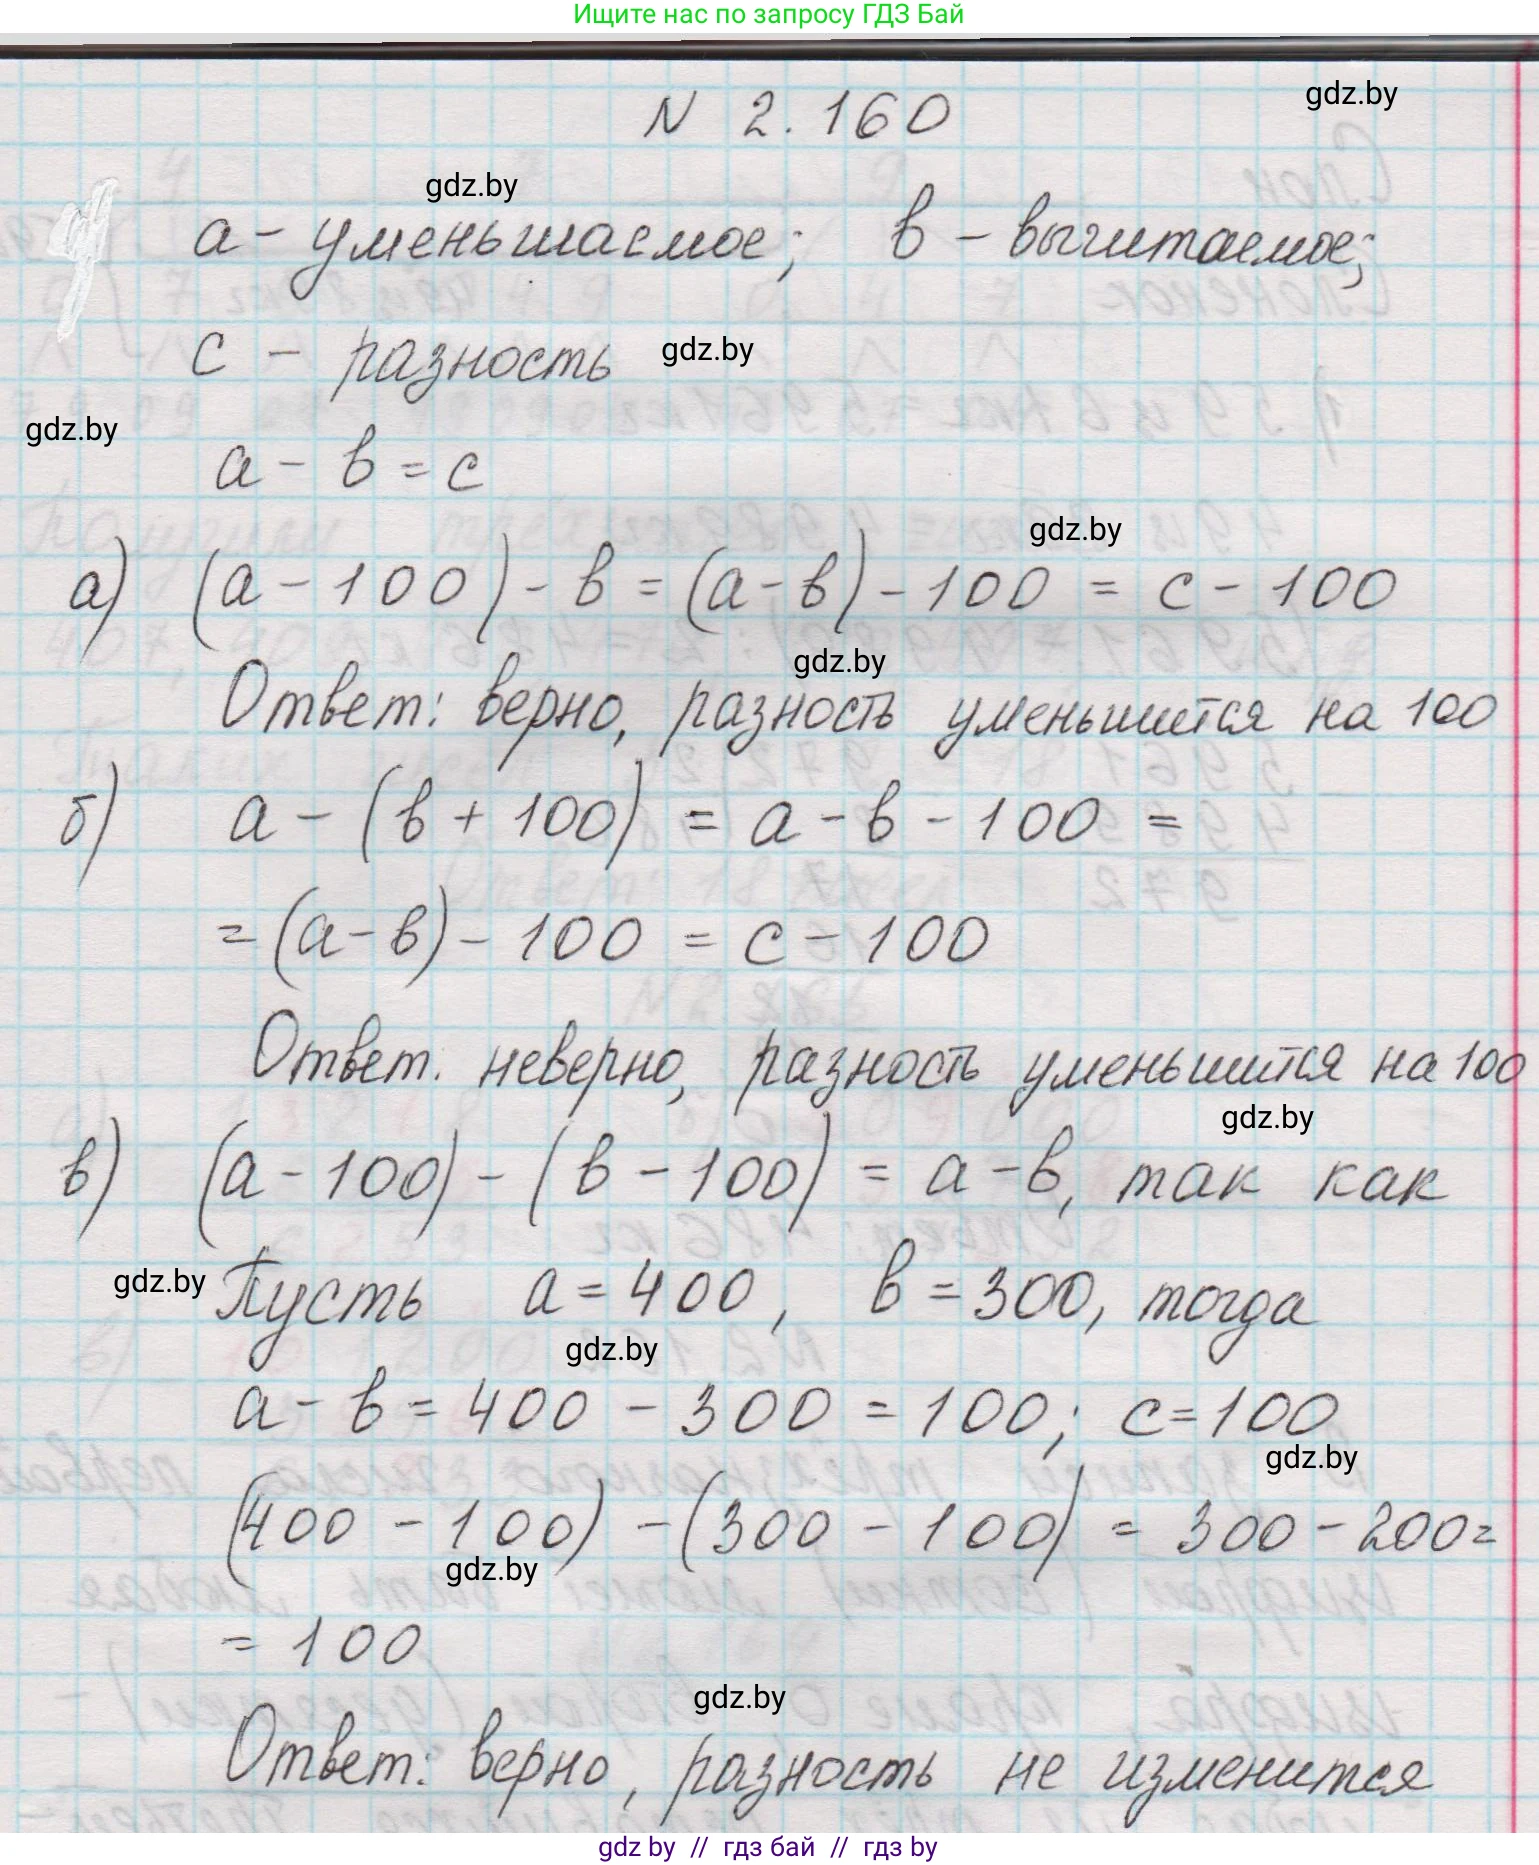 Ищите нас по запросу ГДЗ Бай
gdz.by
N 2.160
gdz.by
а - уменьшаемое; в - вычитаемое;
с - разность
gdz.by
gdz.by
а - в = с
gdz.by
а) (а - 100) - в = (а - в) - 100 = с - 100
gdz.by
Ответ: верно, разность уменьшится на 100
б) а - (в + 100) = а - в - 100 =
= (а - в) - 100 = с - 100
Ответ. неверно, разность уменьшится на 100
gdz.by
в) (а - 100) - (в - 100) = а - в, так как
gdz.by
Пусть а = 400, в = 300, тогда
gdz.by
а - в = 400 - 300 = 100; с = 100
gdz.by
(400 - 100) - (300 - 100) = 300 - 200 =
gdz.by
= 100
gdz.by
Ответ: верно, разность не изменится
gdz by // гдз бай // гдз by